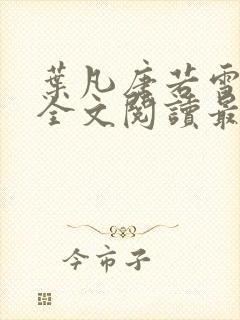 葉凡唐若雪
全文閱讀最
今市子